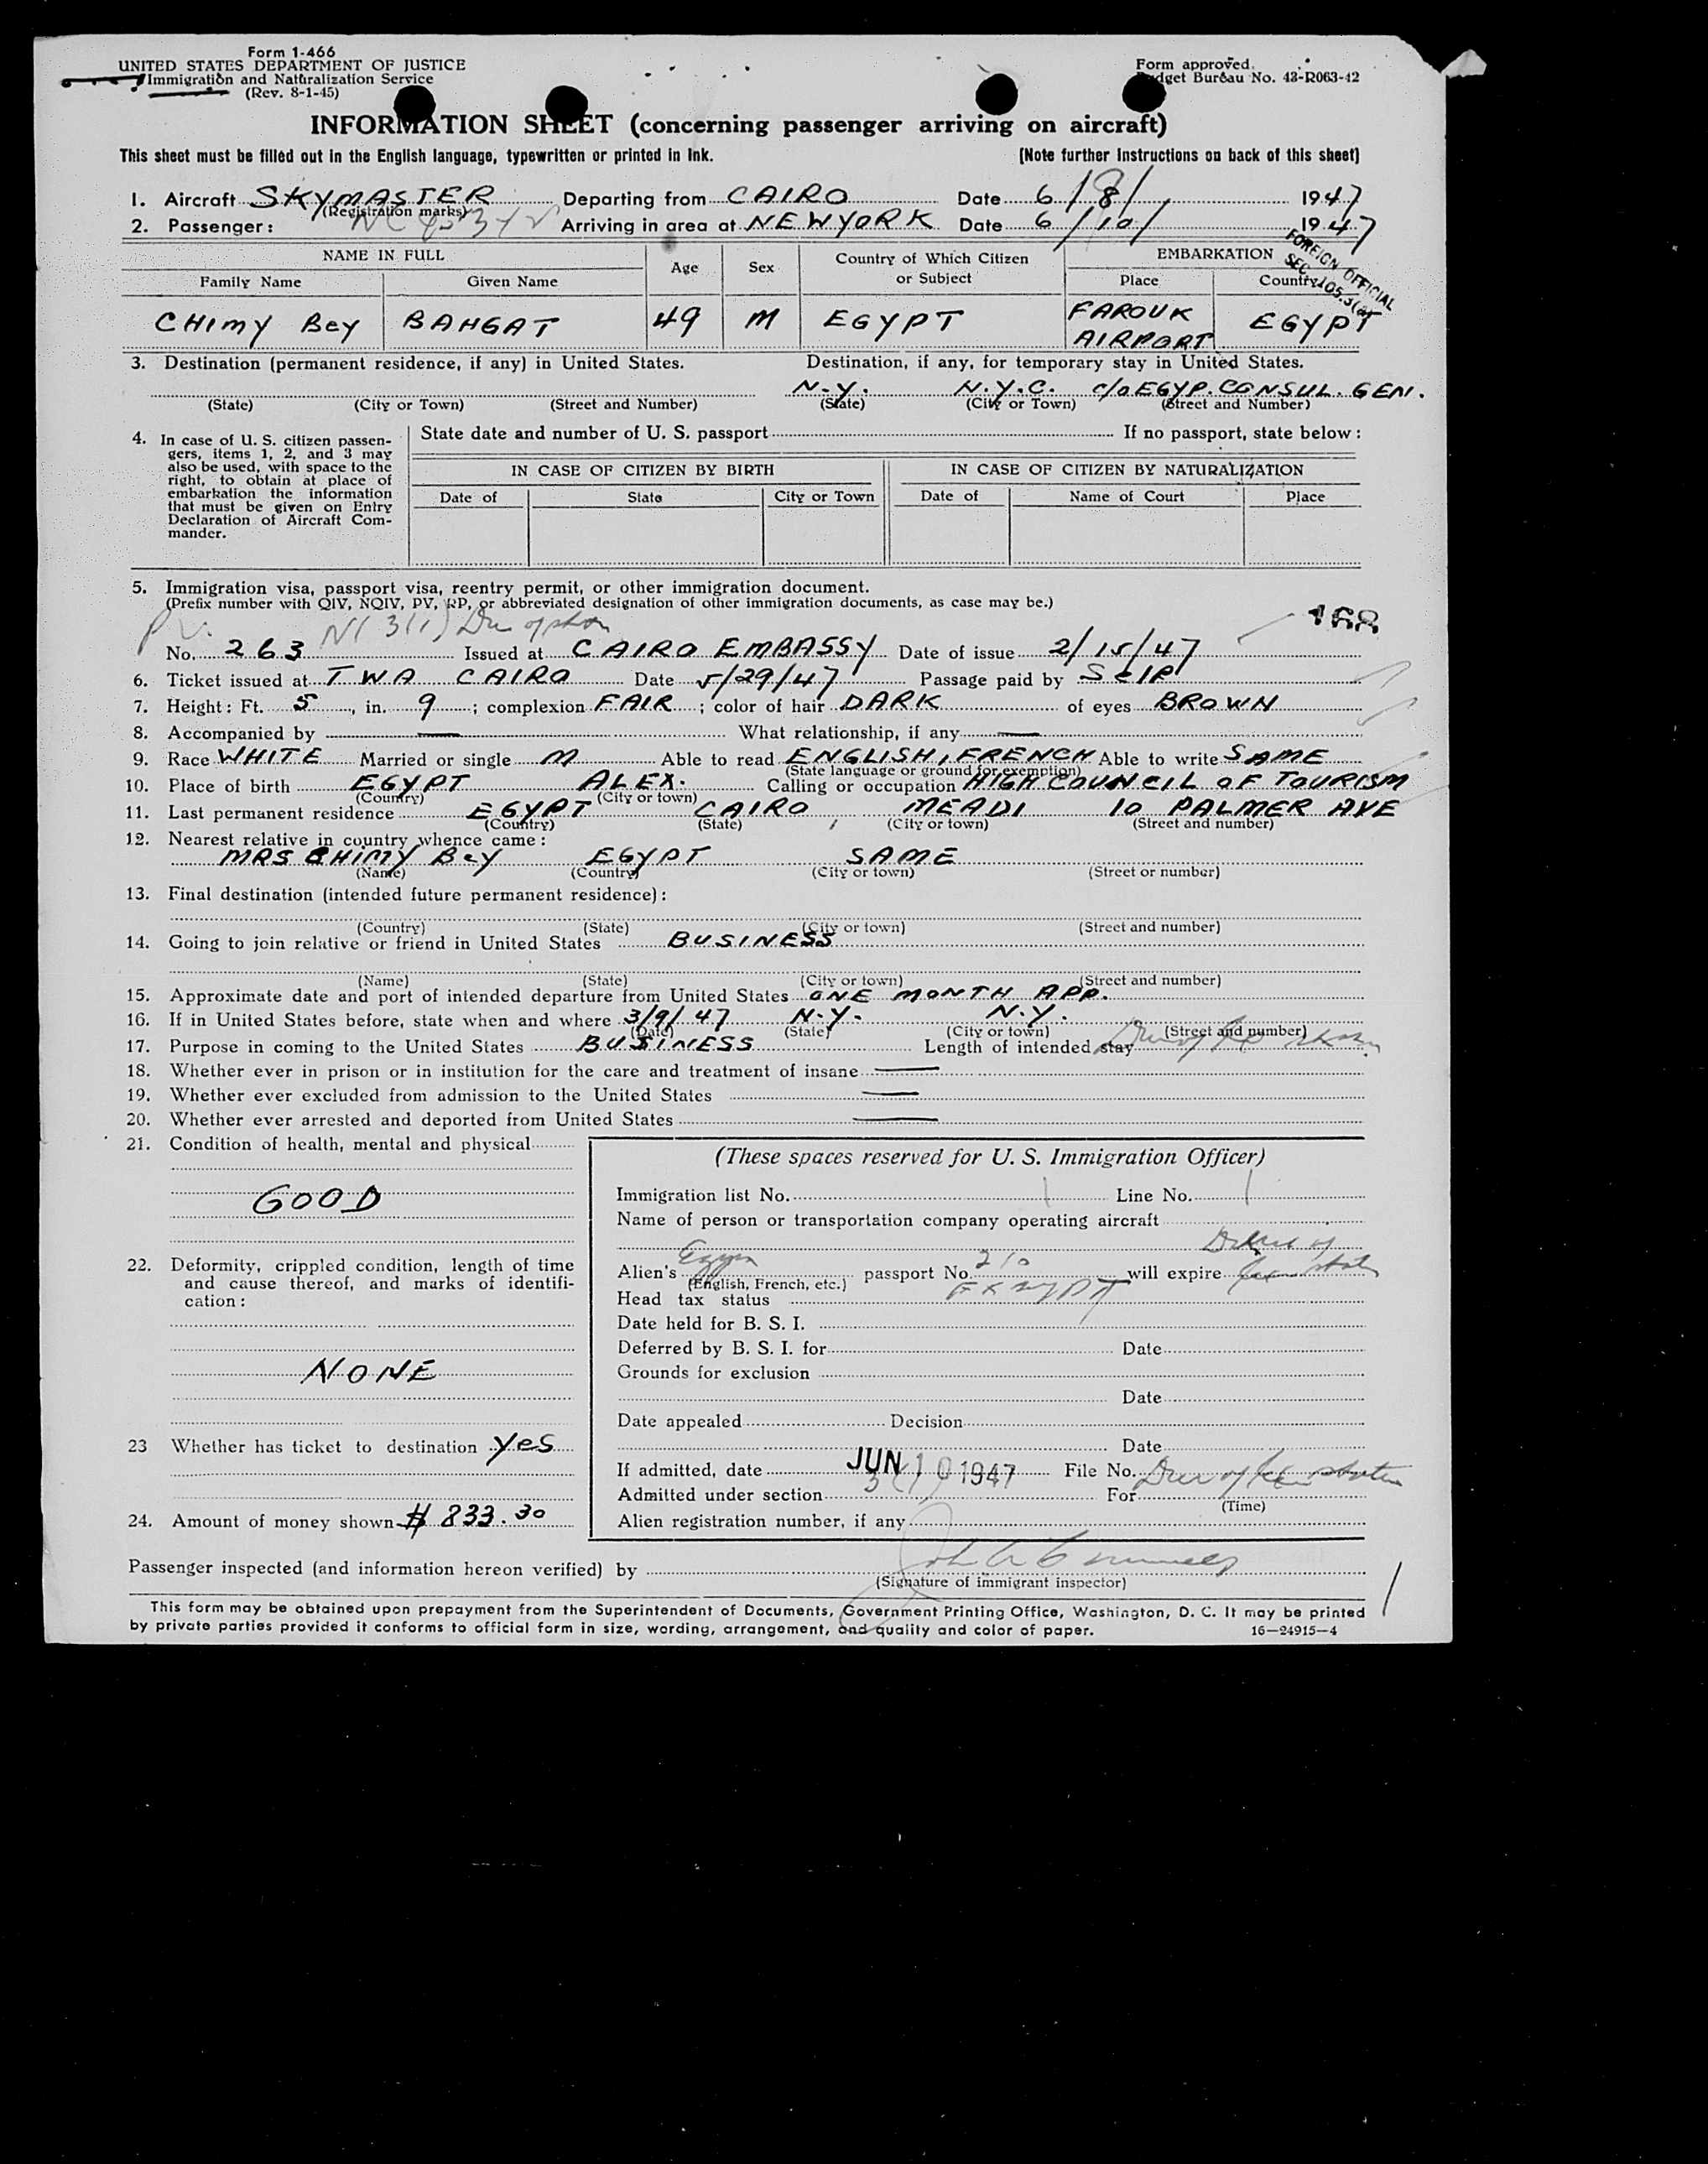 Form 1-466
UNITED STATES DEPARTMENT OF JUSTICE
Immigration and Naturalization Service
(Rev. 8-1-45)
Form approved.
Budget Bureau No. 43-R063-42
INFORMATION SHEET (concerning passenger arriving on aircraft)
This sheet must be filled out in the English language, typewritten or printed in ink.
(Note further instructions on back of this sheet)
1. Aircraft SKYMASTER Departing from CAIRO Date 6/8/ 1947
(Registration marks)
2. Passenger: Arriving in area at NEWYORK Date 6/10/ 1947
FOREIGN OFFICIAL
NAME IN FULL Age Sex Country of Which Citizen or Subject EMBARKATION
Family Name Given Name Place Country
CHIMY Bey BAHGAT 49 M EGYPT FAROUK AIRPORT EGYPT
3. Destination (permanent residence, if any) in United States. Destination, if any, for temporary stay in United States.
N.Y. N.Y.C. c/o EGYP. CONSUL. GEN.
(State) (City or Town) (Street and Number) (State) (City or Town) (Street and Number)
4. In case of U. S. citizen passen-
gers, items 1, 2, and 3 may
also be used, with space to the
right, to obtain at place of
embarkation the information
that must be given on Entry
Declaration of Aircraft Com-
mander.
State date and number of U. S. passport If no passport, state below:
IN CASE OF CITIZEN BY BIRTH IN CASE OF CITIZEN BY NATURALIZATION
Date of State City or Town Date of Name of Court Place
5. Immigration visa, passport visa, reentry permit, or other immigration document.
(Prefix number with QIV, NQIV, PV, RP, or abbreviated designation of other immigration documents, as case may be.)
PV. 168
No. 263 Issued at CAIRO EMBASSY Date of issue 2/15/47
6. Ticket issued at TWA CAIRO Date 5/29/47 Passage paid by SelP
7. Height: Ft. 5, in. 9; complexion FAIR; color of hair DARK of eyes BROWN
8. Accompanied by — What relationship, if any —
9. Race WHITE Married or single M Able to read ENGLISH, FRENCH Able to write SAME
(State language or ground for exemption)
10. Place of birth EGYPT ALEX. Calling or occupation HIGH COUNCIL OF TOURISM
(Country) (City or town)
11. Last permanent residence EGYPT CAIRO MEADI 10 PALMER AVE
(Country) (State) (City or town) (Street and number)
12. Nearest relative in country whence came:
MRS CHIMY Bey EGYPT SAME
(Name) (Country) (City or town) (Street or number)
13. Final destination (intended future permanent residence):
(Country) (State) (City or town) (Street and number)
14. Going to join relative or friend in United States BUSINESS
(Name) (State) (City or town) (Street and number)
15. Approximate date and port of intended departure from United States ONE MONTH APP.
16. If in United States before, state when and where 3/9/47 N.Y. N.Y.
(Date) (State) (City or town) (Street and number)
17. Purpose in coming to the United States BUSINESS Length of intended stay
18. Whether ever in prison or in institution for the care and treatment of insane —
19. Whether ever excluded from admission to the United States —
20. Whether ever arrested and deported from United States —
21. Condition of health, mental and physical
GOOD
22. Deformity, crippled condition, length of time
and cause thereof, and marks of identifi-
cation:
NONE
23 Whether has ticket to destination Yes
24. Amount of money shown $ 833.30
(These spaces reserved for U. S. Immigration Officer)
Immigration list No. 1 Line No. 1
Name of person or transportation company operating aircraft
Alien's passport No. 210 will expire
(English, French, etc.)
Head tax status EXEMPT
Date held for B. S. I.
Deferred by B. S. I. for Date
Grounds for exclusion
Date
Date appealed Decision
Date
If admitted, date JUN 10 1947 File No.
Admitted under section 3(1) For
(Time)
Alien registration number, if any
Passenger inspected (and information hereon verified) by
(Signature of immigrant inspector)
This form may be obtained upon prepayment from the Superintendent of Documents, Government Printing Office, Washington, D. C. It may be printed
by private parties provided it conforms to official form in size, wording, arrangement, and quality and color of paper.
16—24915—4